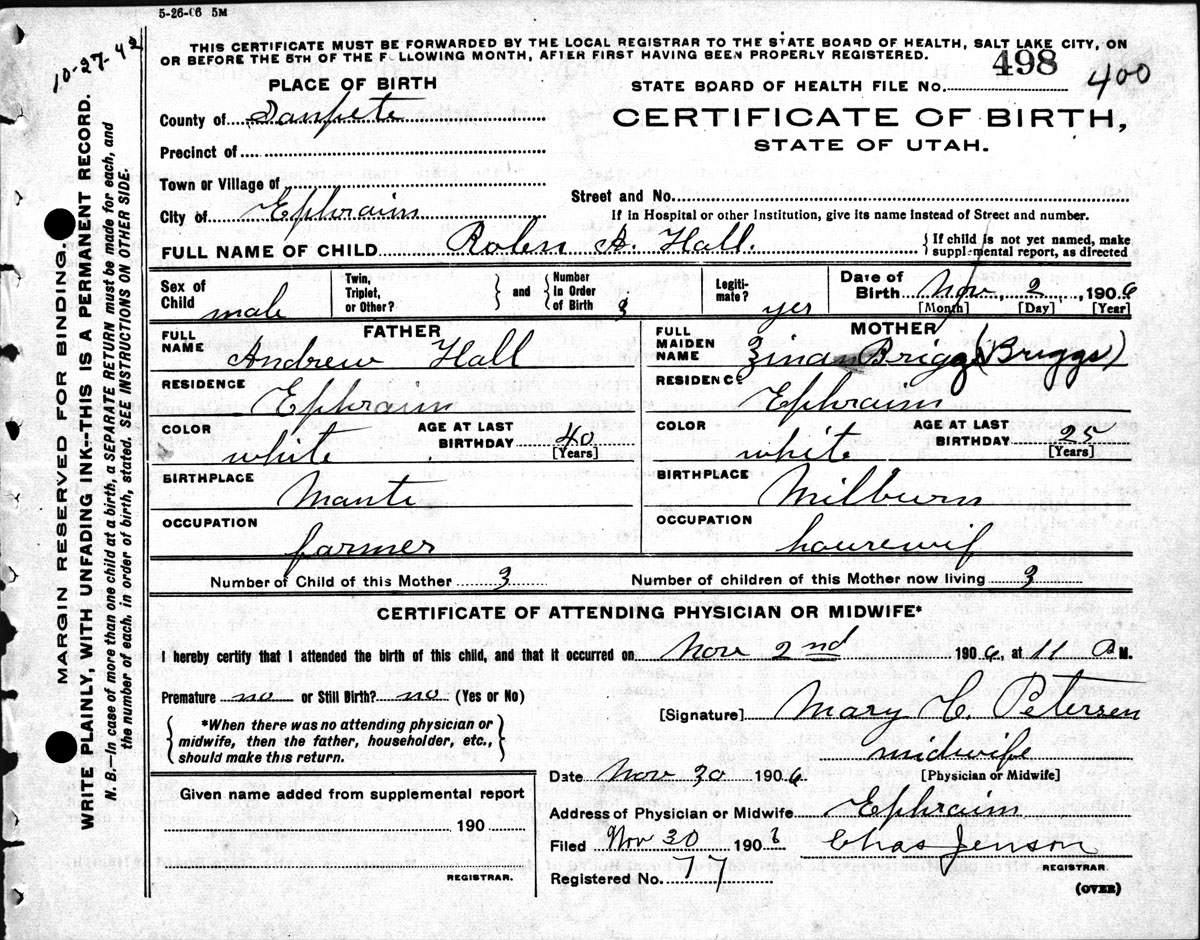 5-26-06 5M
10-27-42
THIS CERTIFICATE MUST BE FORWARDED BY THE LOCAL REGISTRAR TO THE STATE BOARD OF HEALTH, SALT LAKE CITY, ON
OR BEFORE THE 5TH OF THE FOLLOWING MONTH, AFTER FIRST HAVING BEEN PROPERLY REGISTERED.
498
400
STATE BOARD OF HEALTH FILE NO.
CERTIFICATE OF BIRTH,
STATE OF UTAH.
PLACE OF BIRTH
County of Sanpete
Precinct of
Town or Village of
City of Ephraim
Street and No.
If in Hospital or other Institution, give its name instead of Street and number.
FULL NAME OF CHILD A. Hall.
{ If child is not yet named, make
supplemental report, as directed
Sex of Child male
Twin, Triplet, or Other? } and { Number in Order of Birth 3
Legiti-mate? yes
Date of Birth Nov 2, 1906
[Month] [Day] [Year]
FATHER
FULL NAME Andrew Hall
RESIDENCE Ephraim
COLOR white AGE AT LAST BIRTHDAY 40 [Years]
BIRTHPLACE Manti
OCCUPATION farmer
MOTHER
FULL MAIDEN NAME Briggs (Briggs)
RESIDENCE Ephraim
COLOR white AGE AT LAST BIRTHDAY 25 [Years]
BIRTHPLACE Milburn
OCCUPATION housewif
Number of Child of this Mother 3 Number of children of this Mother now living 3
CERTIFICATE OF ATTENDING PHYSICIAN OR MIDWIFE*
I hereby certify that I attended the birth of this child, and that it occurred on Nov 2nd 1906, at 11 P M.
Premature no or Still Birth? no (Yes or No)
{ *When there was no attending physician or
midwife, then the father, householder, etc.,
should make this return. }
[Signature] Mary C. Petersen
midwife
[Physician or Midwife]
Date Nov 30 1906.
Address of Physician or Midwife Ephraim
Filed Nov 30 1906 Chas Jenson
REGISTRAR.
Registered No. 77
(OVER)
Given name added from supplemental report
190
REGISTRAR.
MARGIN RESERVED FOR BINDING.
WRITE PLAINLY, WITH UNFADING INK--THIS IS A PERMANENT RECORD.
N. B.—In case of more than one child at a birth, a SEPARATE RETURN must be made for each, and
the number of each, in order of birth, stated. SEE INSTRUCTIONS ON OTHER SIDE.